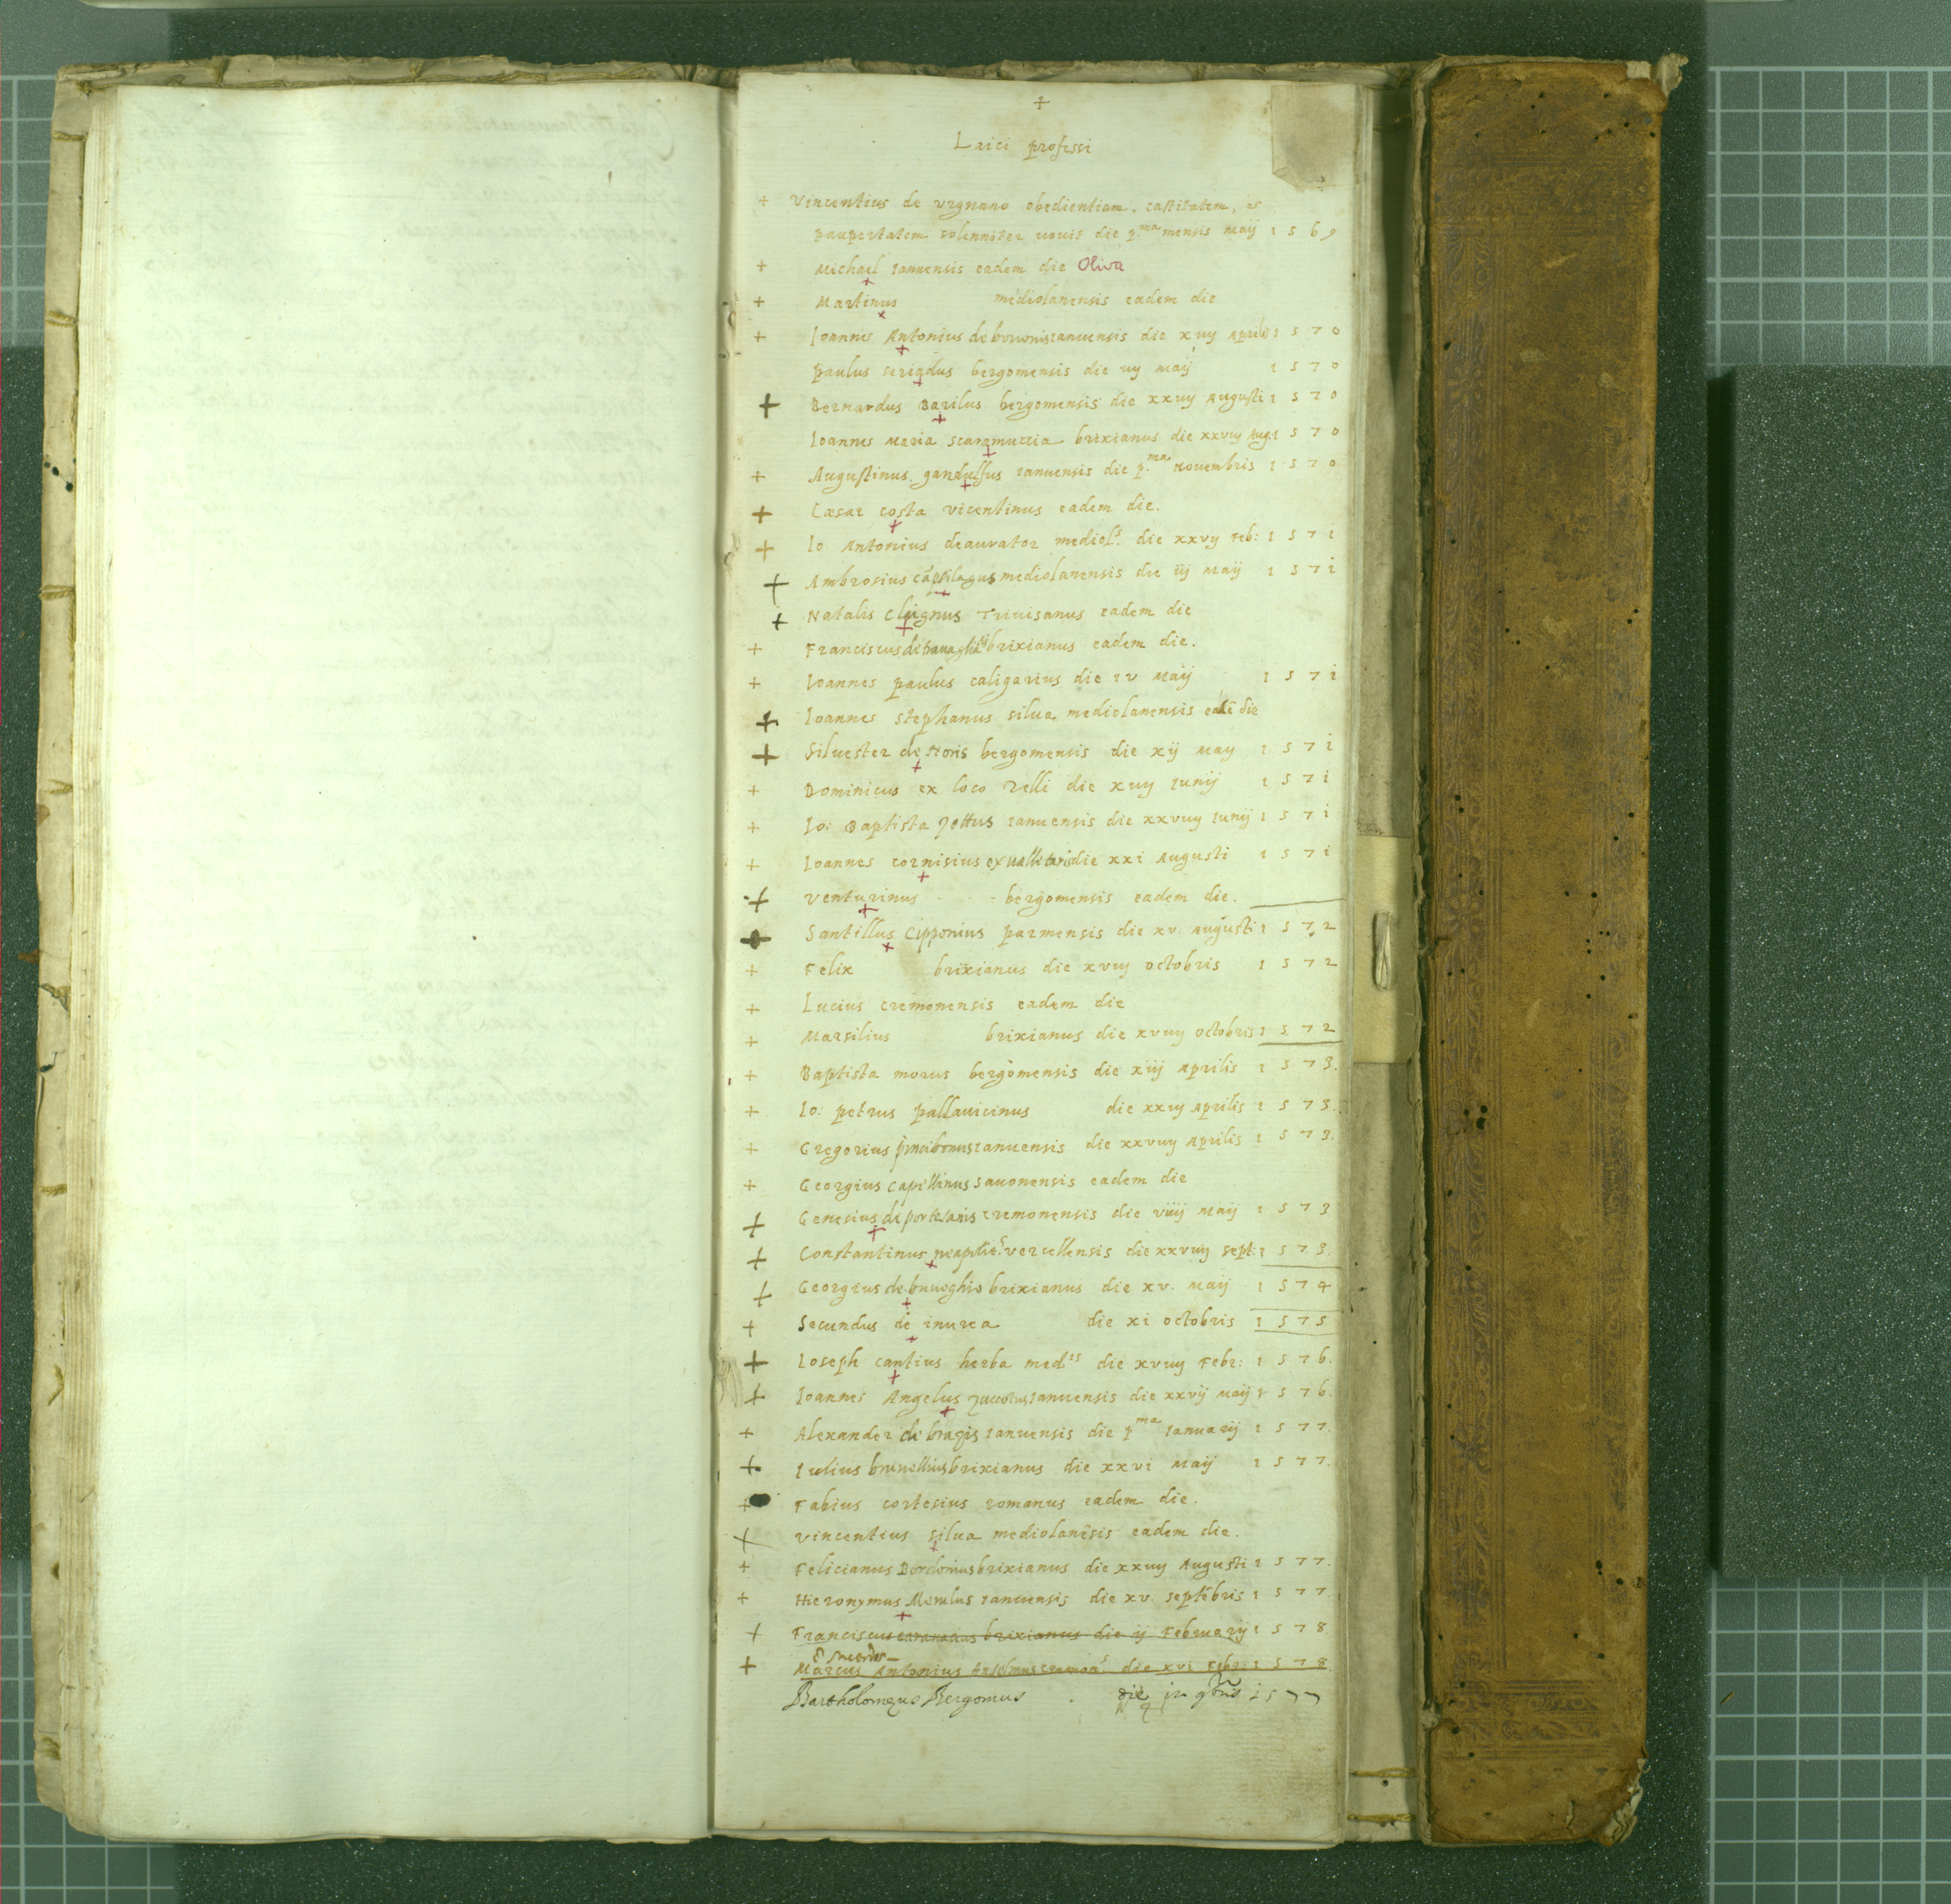 +
Laici professi
+ Vincentius de vrgnano obedientiam, castitatem, et
paupertatem solenniter uouit die p.ma mensis maij 1569
+ Michael Ianuensis eadem die Oliva
+ Martinus mediolanensis eadem die
+ Ioannes Antonius de ianuensis die xuij Aprilis 1570
paulus bergomensis die iiij maij 1570
+ Bernardus Barilus bergomensis die xxiiij Augusti 1570
Ioannes Maria scaramuccia brixianus die xxviij Aug. 1570
+ Augustinus gandulfus Ianuensis die p.ma Nouembris 1570
+ Cæsar costa vicentinus eadem die.
+ Io. Antonius deaurator mediol.s die xxvij Feb: 1571
+ Ambrosius mediolanensis die iij Maij 1571
+ Natalis Triuisanus eadem die
+ Franciscus brixianus eadem die.
+ Ioannes paulus caligarius die iv Maij 1571
+ Ioannes stephanus silua mediolanensis eadē die
+ Siluester de bergomensis die xij May 1571
+ Dominicus ex loco Zelli die xuij Iunij 1571
+ Io: Baptista Zettus Ianuensis die xxviij Iunij 1571
+ Ioannes cornisius ex die xxi Augusti 1571
+ Venturinus - - - bergomensis eadem die.
+ Santillus Cipponius parmensis die xv. Augusti 1572
+ Felix brixianus die xviij octobris 1572
+ Lucius cremonensis eadem die
+ Marsilius brixianus die xviiij octobris 1572
+ Baptista morus bergomensis die xiij Aprilis 1573.
+ Io: petrus pallauicinus die xxiij Aprilis 1573.
+ Gregorius Ianuensis die xxviiij Aprilis 1573.
+ Georgius Capellinus Sauonensis eadem die
+ Genesius de portesanis cremonensis die viiij Maij 1573
+ Constantinus vercellensis die xxviiij Sept: 1573.
+ Georgius de brixianus die xv. Maij 1574
+ Secundus de inurea die xi octobris 1575
+ Ioseph cantius herba med.ss die xviiij Febr: 1576.
+ Ioannes Angelus Ianuensis die xxvij Maij 1576.
+ Alexander de Ianuensis die p.ma Ianuarij 1577.
+ Iulius brunellius brixianus die xxvi Maij 1577.
+ Fabius cortesius romanus eadem die.
+ Vincentius silua mediolanēsis eadem die.
+ Felicianus Bordonius brixianus die xxiiij Augusti 1577.
+ Hieronymus Merulus Ianuensis die xv. Septēbris 1577.
+ Franciscus brixianus die ij Februarij 1578
+ Marcus Antonius Anselmus cremon.s die xvi Febr: 1578
Bartholomęus Bergomus die 1577